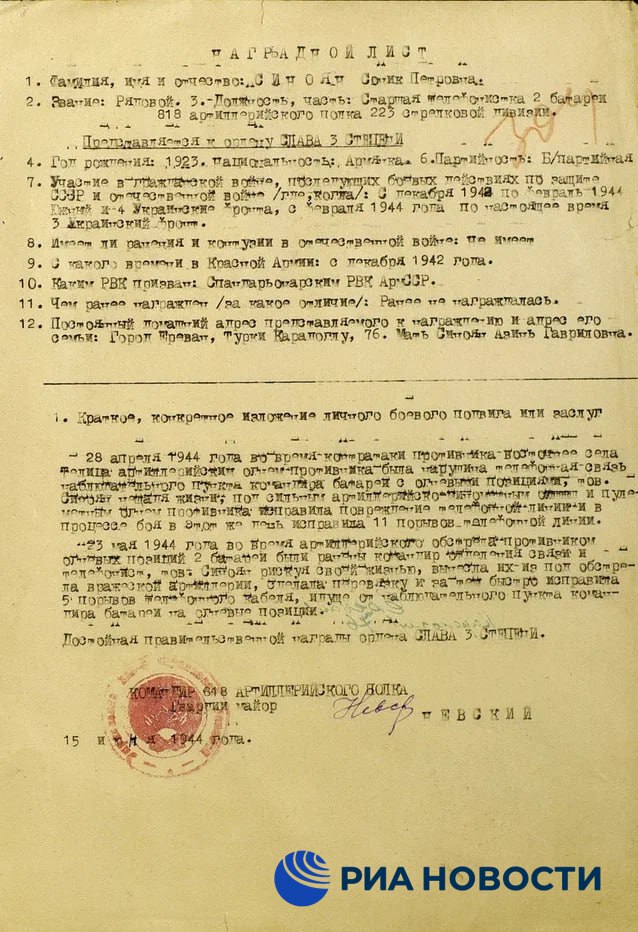 НАГРАДНОЙ ЛИСТ
1. Фамилия, имя и отчество: СИНОЯН Соник Петровна.
2. Звание: Рядовой. 3.-Должность, часть: Старшая телефонистка 2 батареи
818 артиллерийского полка 223 стрелковой дивизии.
Представляется к ордену СЛАВА 3 СТЕПЕНИ
4. Год рождения: 1923. национальность: Армянка. 6.Партийность: Б/партийная
7. Участие в гражданской войне, последующих боевых действиях по защите
СССР и отечественной войне /где,когда/: С декабря 1942 по февраль 1944
Южный и 4 Украинские фронта, с февраля 1944 года по настоящее время
3 Украинский фронт.
8. Имеет ли ранения и контузии в отечественной войне: не имеет
9. С какого времени в Красной Армии: с декабря 1942 года.
10. Каким РВК призван: Спандарьонарским РВК АрССР.
11. Чем ранее награжден /за какое отличие/: Ранее не награждалась.
12. Постоянный домашний адрес представляемого к награждению и адрес его
семьи: Город Ереван, Турки Караполту, 76. Мать Синоян Азинь Гавриловна.
1. Краткое, конкретное изложение личного боевого подвига или заслуг
28 апреля 1944 года во время контратаки противника восточнее села
Телица артиллерийским огнем противника была нарушина телефонная связь
наблюдательного пункта командира батареи с огневыми позициями, тов.
Синоян не жалея жизни, под сильным артиллерийско-минометным огнем и пуле
метным огнем противника исправила повреждение телефонной линии и в
процессе боя в этот же день исправила 11 порывов телефонной линии.
23 мая 1944 года во время артиллерийского обстрела противником
огневых позиций 2 батареи были ранены командир отделения связи и
телефонист, тов. Синоян рискуя своей жизнью, вынесла их из под обстре-
ла вражеской артиллерии, сделала перевязку и за тем быстро исправила
5 порывов телефонного кабеля, идуще от наблюдательного пункта коман-
дира батареи на огневые позиции.
Достойная правительственной награды ордена СЛАВА 3 СТЕПЕНИ.
КОМАНДИР 618 АРТИЛЛЕРИЙСКОГО ПОЛКА
Гвардии майор
НЕВСКИЙ
15 июня 1944 года.
РИА НОВОСТИ